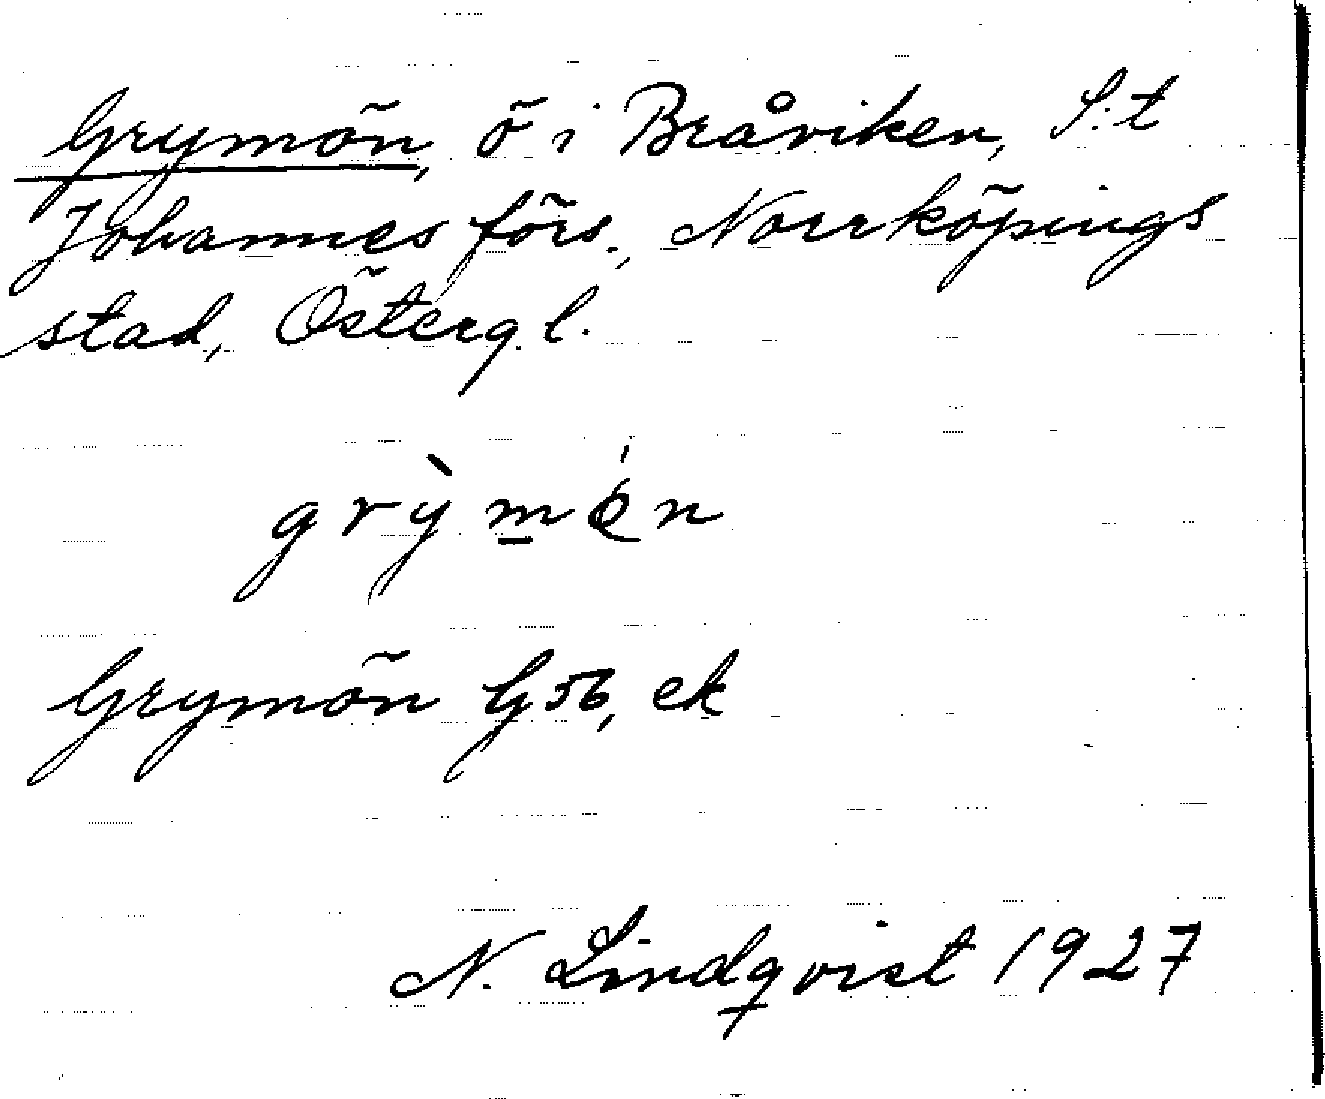 Grymön, ö i Bråviken, S:t
Johannes förs., Norrköpings
stad, Österg. l.
grỳmǿn
Grymön G 56, ek
N. Lindqvist 1927